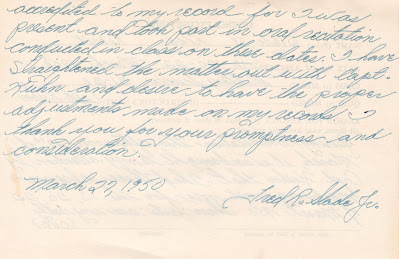 accredited to my record for I was
present and took part in oral recitation
conducted in class on these dates. I have
straightened the matter out with Capt.
Kuhn and desire to have the proper
adjustments made on my records. I
thank you for your promptness and
consideration.
March 27, 1950
Fred R. Slade Jr.